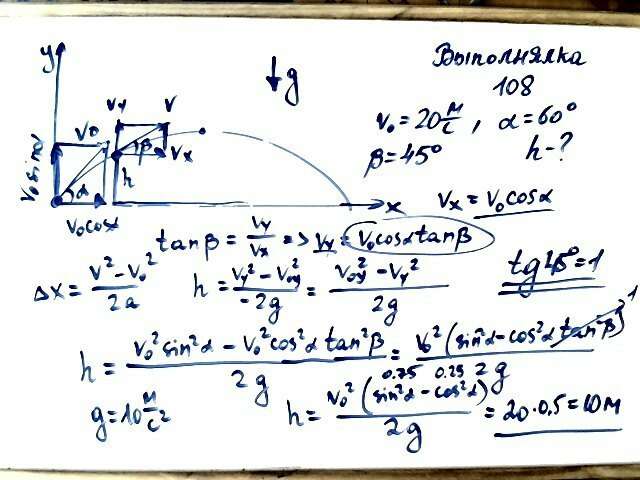 Выполнялка
108
y
↓g
v₀ = 20 м/с, α = 60°
β = 45° h - ?
Vy V
V₀ β Vx
V₀ sinα α h
V₀cosα x
Vx = V₀cosα
tanβ = Vy/Vx => Vy = V₀cosα tanβ
tg 45° = 1
Δx = (V² - V₀²)/2a h = (Vy² - V₀y²)/-2g = (V₀y² - Vy²)/2g
h = (V₀² sin²α - V₀² cos²α tan²β)/2g = V₀² (sin²α - cos²α tan²β)/2g 1
0.75 0.25
g = 10 м/с² h = V₀² (sin²α - cos²α)/2g = 20·0,5 = 10м